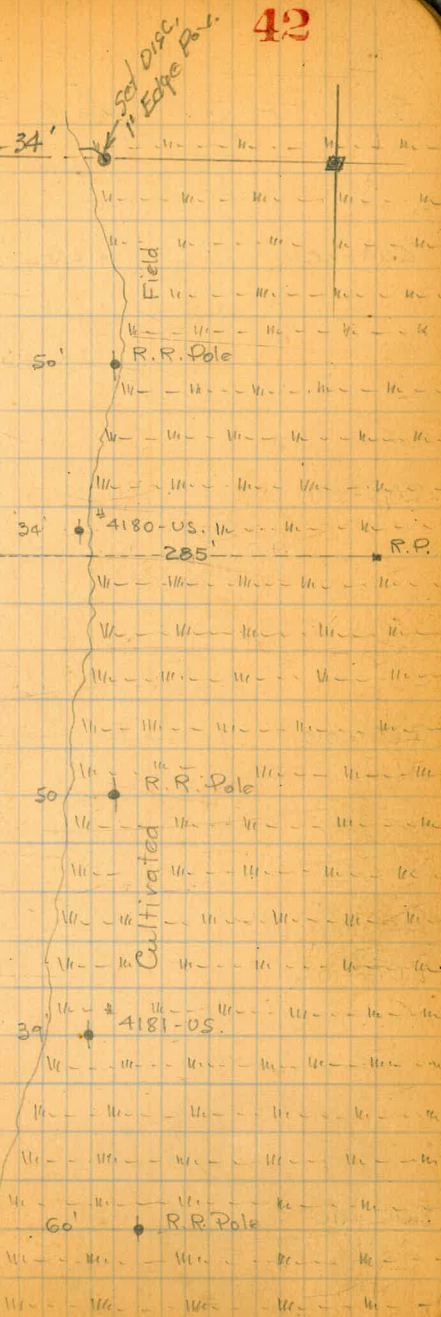 42
Set Disc,
1" Edge Pav.
34'
Field
50' R.R. Pole
34' #4180-US.
285' R.P.
50 R.R. Pole
Cultivated
39' #4181-US.
60' R.R. Pole